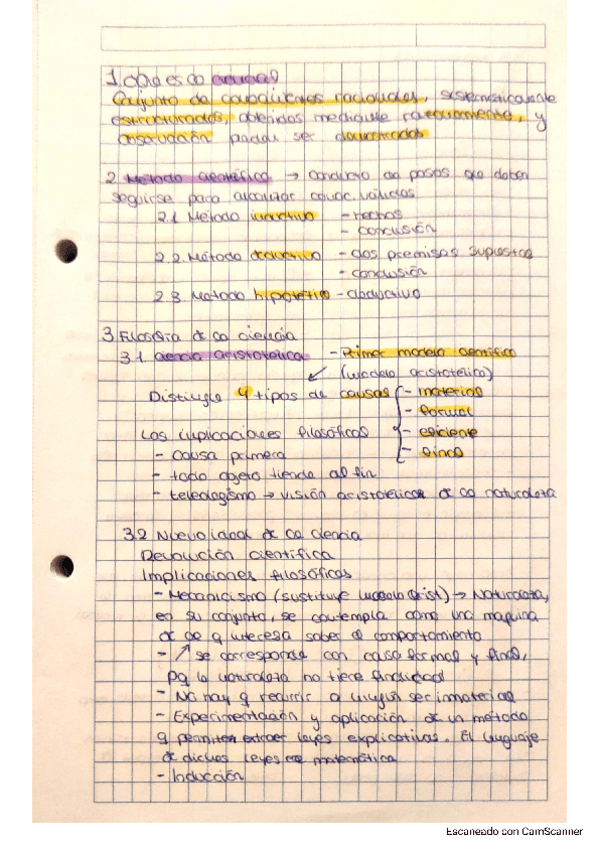 1. Qué es la ciencia?
Conjunto de conocimientos racionales, sistemáticamente
estructurados, obtenidos mediante razonamiento, y
observación puedan ser demostrados
2. Método científico → conducto de pasos que deben
seguirse para alcanzar conoc. válidos
2.1 Método inductivo - hechos
- conclusión
2.2. Método deductivo - dos premisas supuestos
- conclusión
2.3. Método hipotético - deductivo
3. Filosofía d la ciencia
3.1. ciencia aristotélica - Primer modelo científico
(modelo aristotélico)
Distingue 4 tipos de causas - material
- formal
Las implicaciones filosóficas - eficiente
- causa primera - final
- todo objeto tiende al fin
- teleologismo → visión aristotélica d la naturaleza
3.2 Nuevo ideal d la ciencia
Revolución científica
Implicaciones filosóficas
- Mecanicismo (sustituye modelo arist) → Naturaleza,
en su conjunto, se contempla como una maquina
d la q interesa saber el comportamiento
- ↗ se corresponde con casa formal y final,
pq la naturaleza no tiene finalidad
- No hay q recurrir a ningún ser inmaterial
- Experimentación y aplicación d un método
q permiten extraer leyes explicativas. El lenguaje
d dichas leyes es matemática
- Inducción
Escaneado con CamScanner